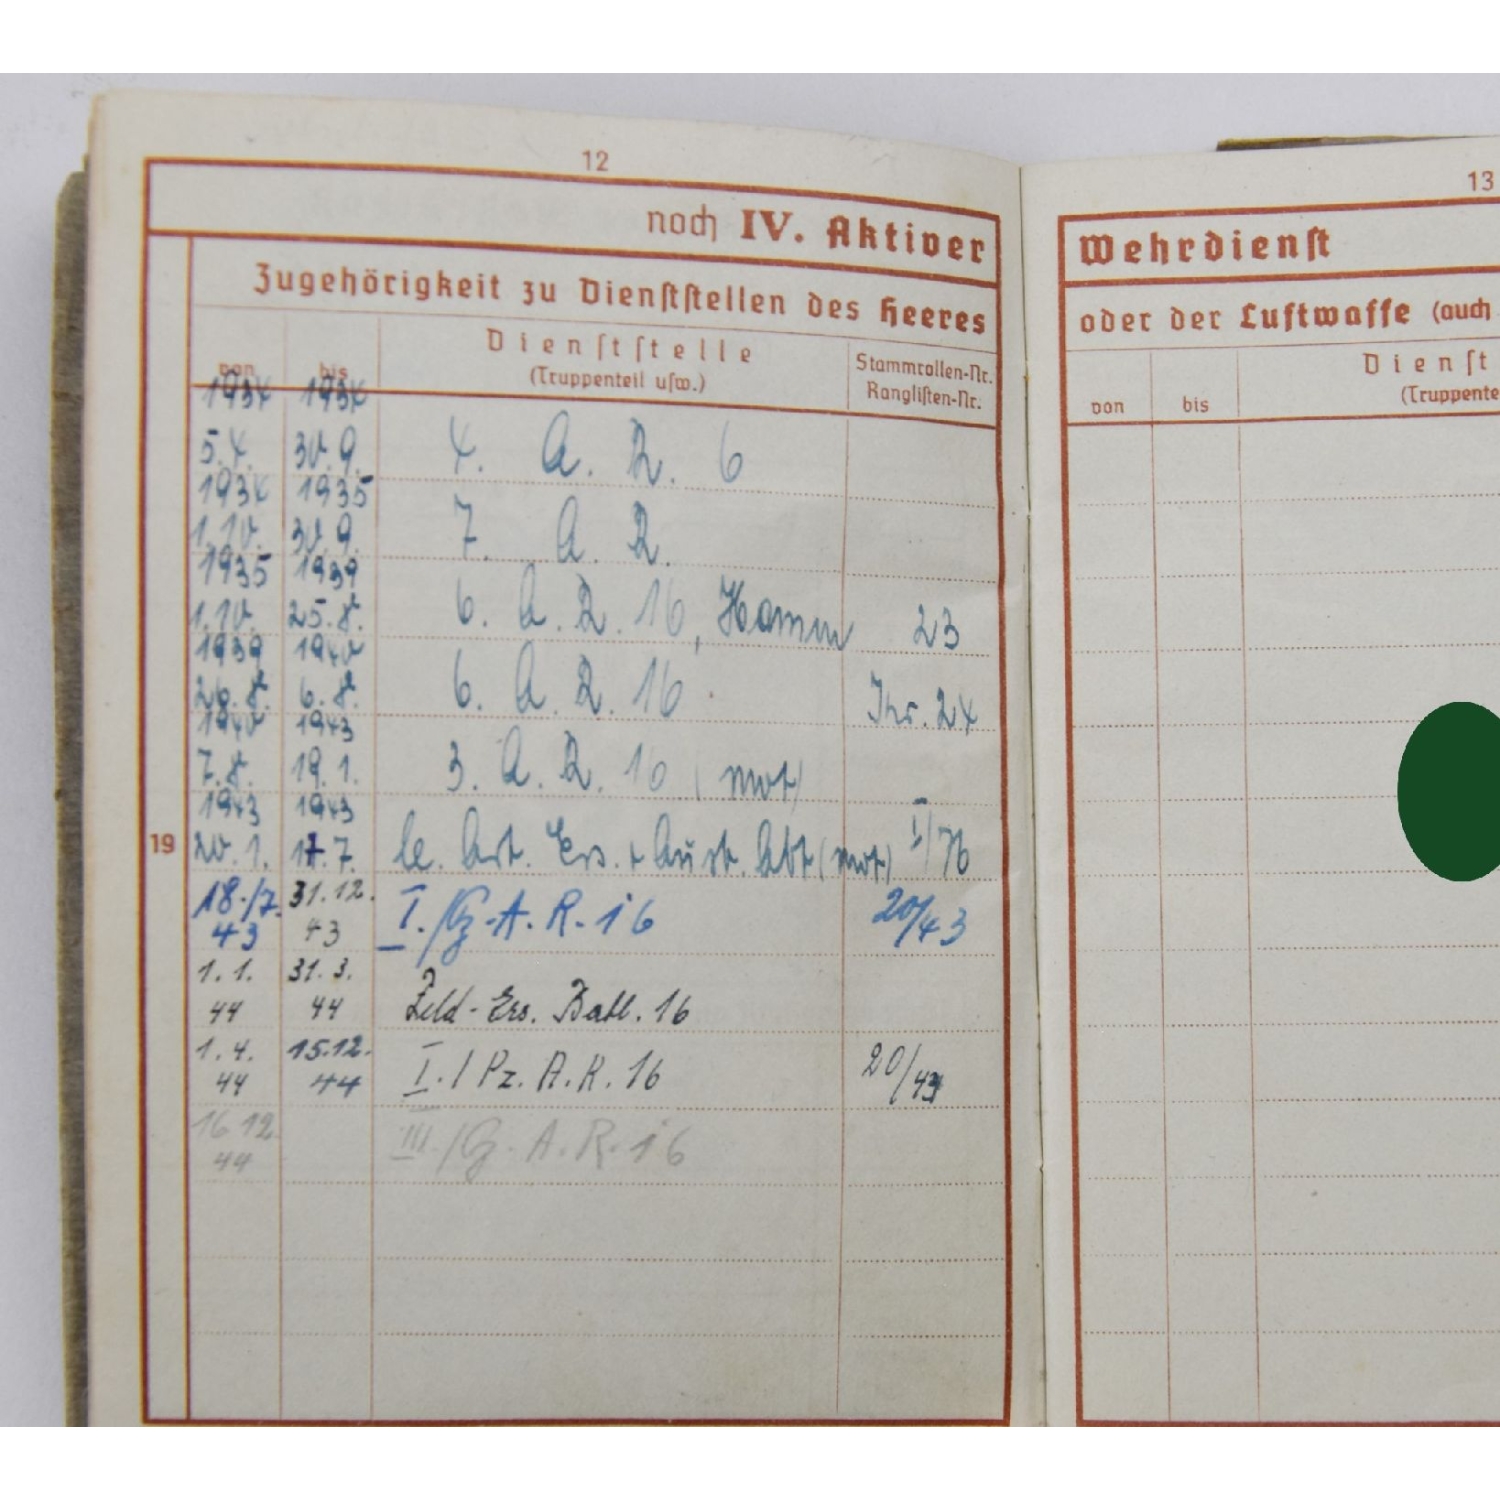 12
noch IV. Aktiver
Zugehörigkeit zu Dienststellen des Heeres
von bis Dienststelle (Truppenteil usw.) Stammrollen-Nr. Ranglisten-Nr.
1934 1934
5.4. 30.9. 4. A. R. 6
1934 1935
1.10. 30.9. 7. A. R.
1935 1939
1.10. 25.8. 6. A. R. 16, Hamm 23
1939 1940
26.8. 6.8. 6. A. R. 16. 24
1940 1943
7.8. 19.1. 3. A. R. 16 (mot)
1943 1943
19 20.1. 17.7. le. Art. Ers. + Ausb. Abt (mot) I/76
18./7. 31.12.
43 43 I./Pz.-A.-R.-16 20/43
1.1. 31.3.
44 44 Feld-Ers. Batl. 16
1.4. 15.12.
44 44 I./Pz. A.R. 16 20/43
16 12.
44 III./Pz.-A.R.16
13
Wehrdienst
oder der Luftwaffe (auch
von bis Dienst
(Truppente